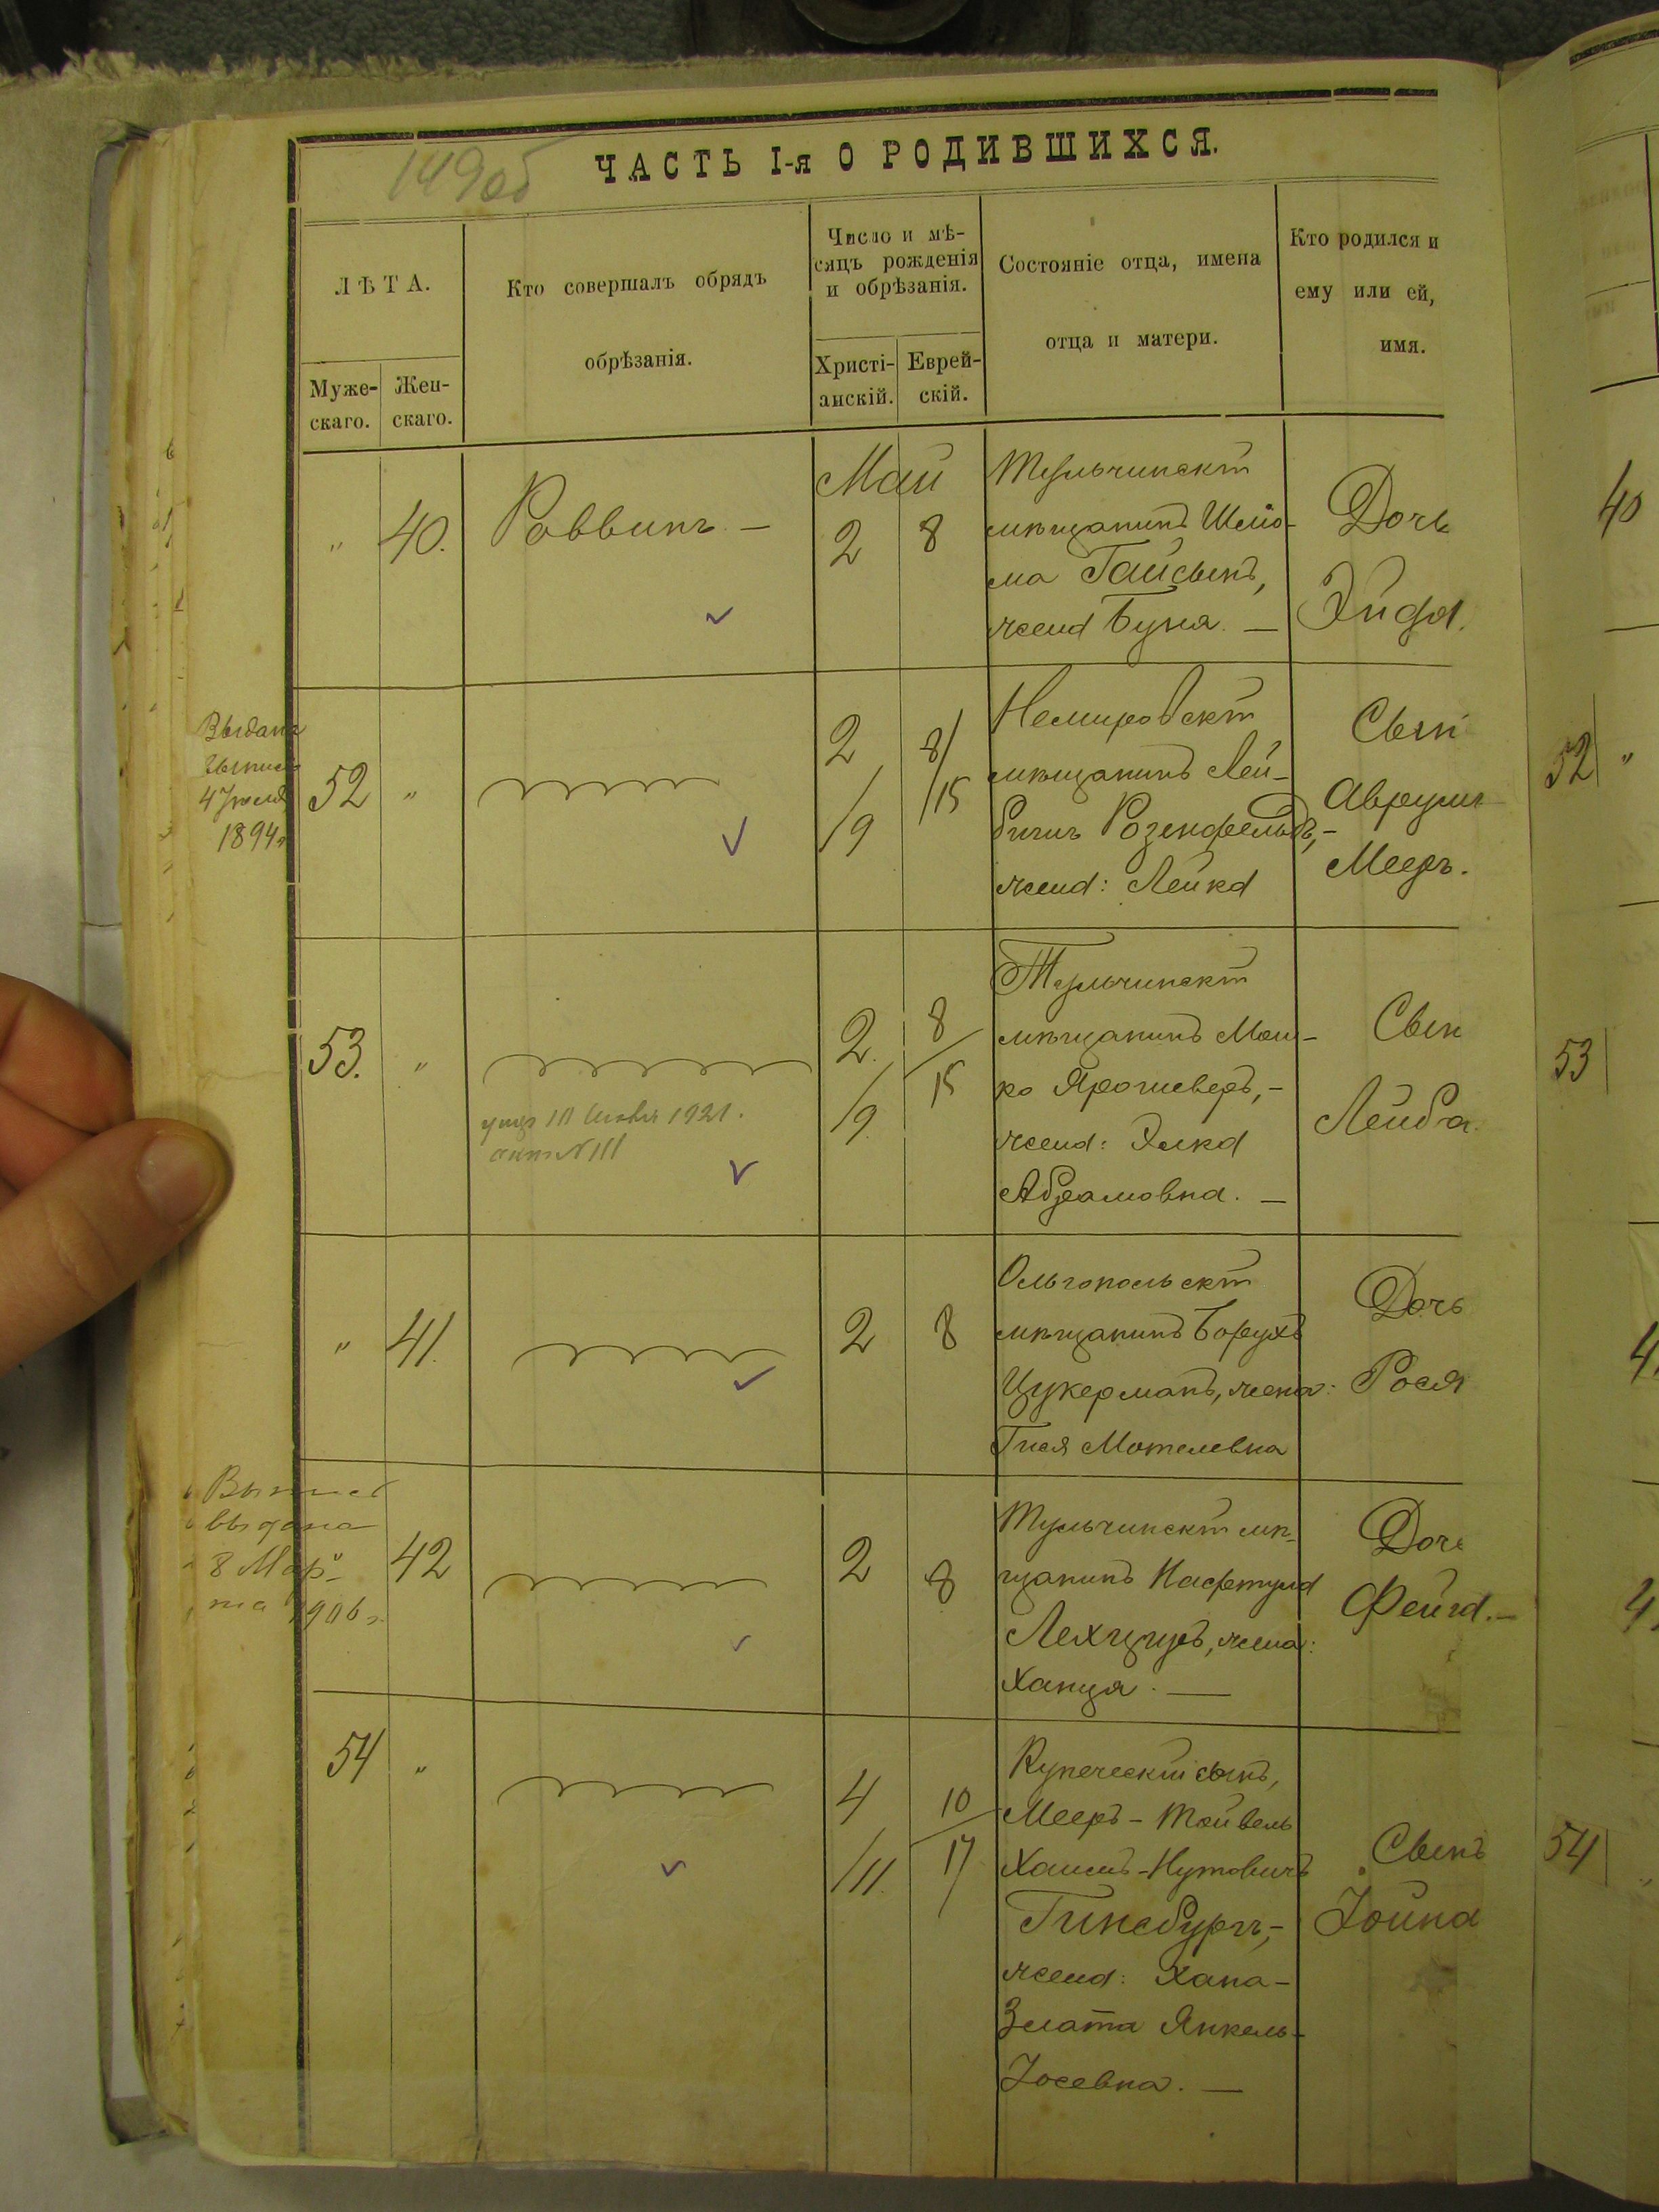 149об
ЧАСТЬ I-я О РОДИВШИХСЯ.
ЛѢТА.
Муже-
скаго.
Жен-
скаго.
Кто совершалъ обрядъ
обрѣзанія.
Число и мѣ-
сяцъ рожденія
и обрѣзанія.
Христі-
анскій.
Еврей-
скій.
Состояніе отца, имена
отца и матери.
Кто родился и
ему или ей,
имя.
" 40.
Раввинъ. —
Май
2 8
Тульчинскій
мѣщанинъ Шлио-
ма Гайсынъ,
жена Буня. —
Дочь
Эйдя.
40
Выдана
4
1894г
52 "
2 8/
/9 /15
Немировскій
мѣщанинъ Лей-
бишъ Розенфельдъ,-
жена: Лейка
Сынъ
Аврумъ-
Мееръ.
52 "
53. "
1921.
№ 111
2. 8
/9. 15
Тульчинскій
мѣщанинъ Мош-
ко Ярошеверъ,-
жена: Элка
Абрамовна. —
Сынъ
Лейба.
53
" 41.
2 8
Ольгопольскій
мѣщанинъ Борухъ
Цукерманъ, жена:
Гися Мотелевна
Дочь
Рося
Выпись
выдана
8 Мар-
та 1906г.
42
2 8
Тульчинскій мѣ-
щанинъ Нафтула
жена:
Ханця. —
Дочь
Фейга.—
54 "
4 10
/11. 17
Купеческій сынъ,
Мееръ-Тойвель
Хаимъ-Нутовичъ
Гинсбургъ,-
жена: Хана-
Злата Янкель-
Іосевна. —
Сынъ
Іойна
54